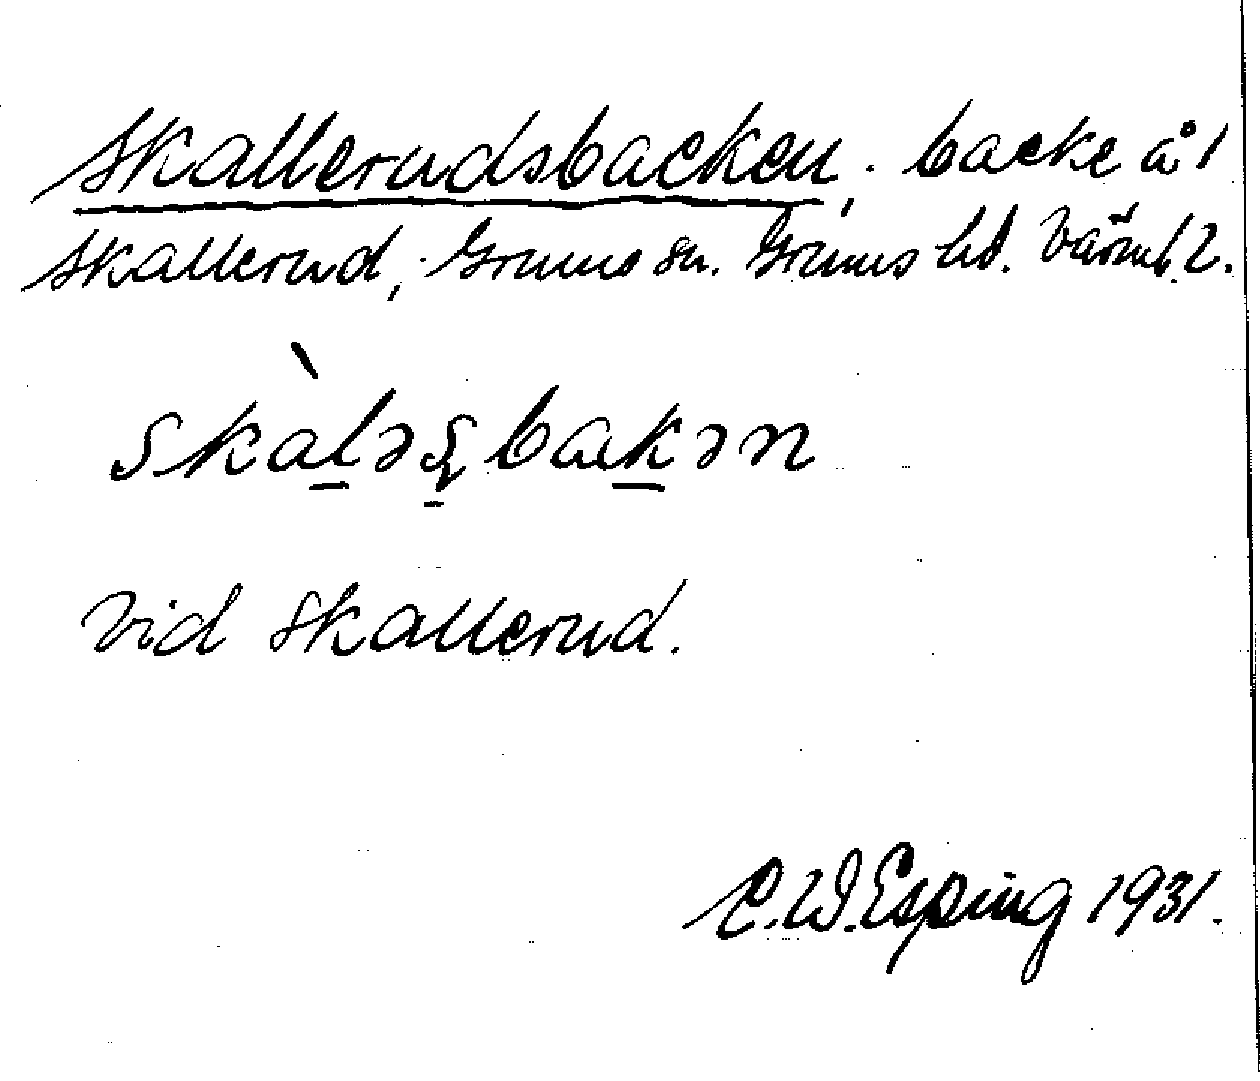 Skallerudsbacken, backe å 1
Skallerud, Grums sn. Grums hd. Värml. l.
skàləʂbakən
vid Skallerud.
C.W. Esping 1931.